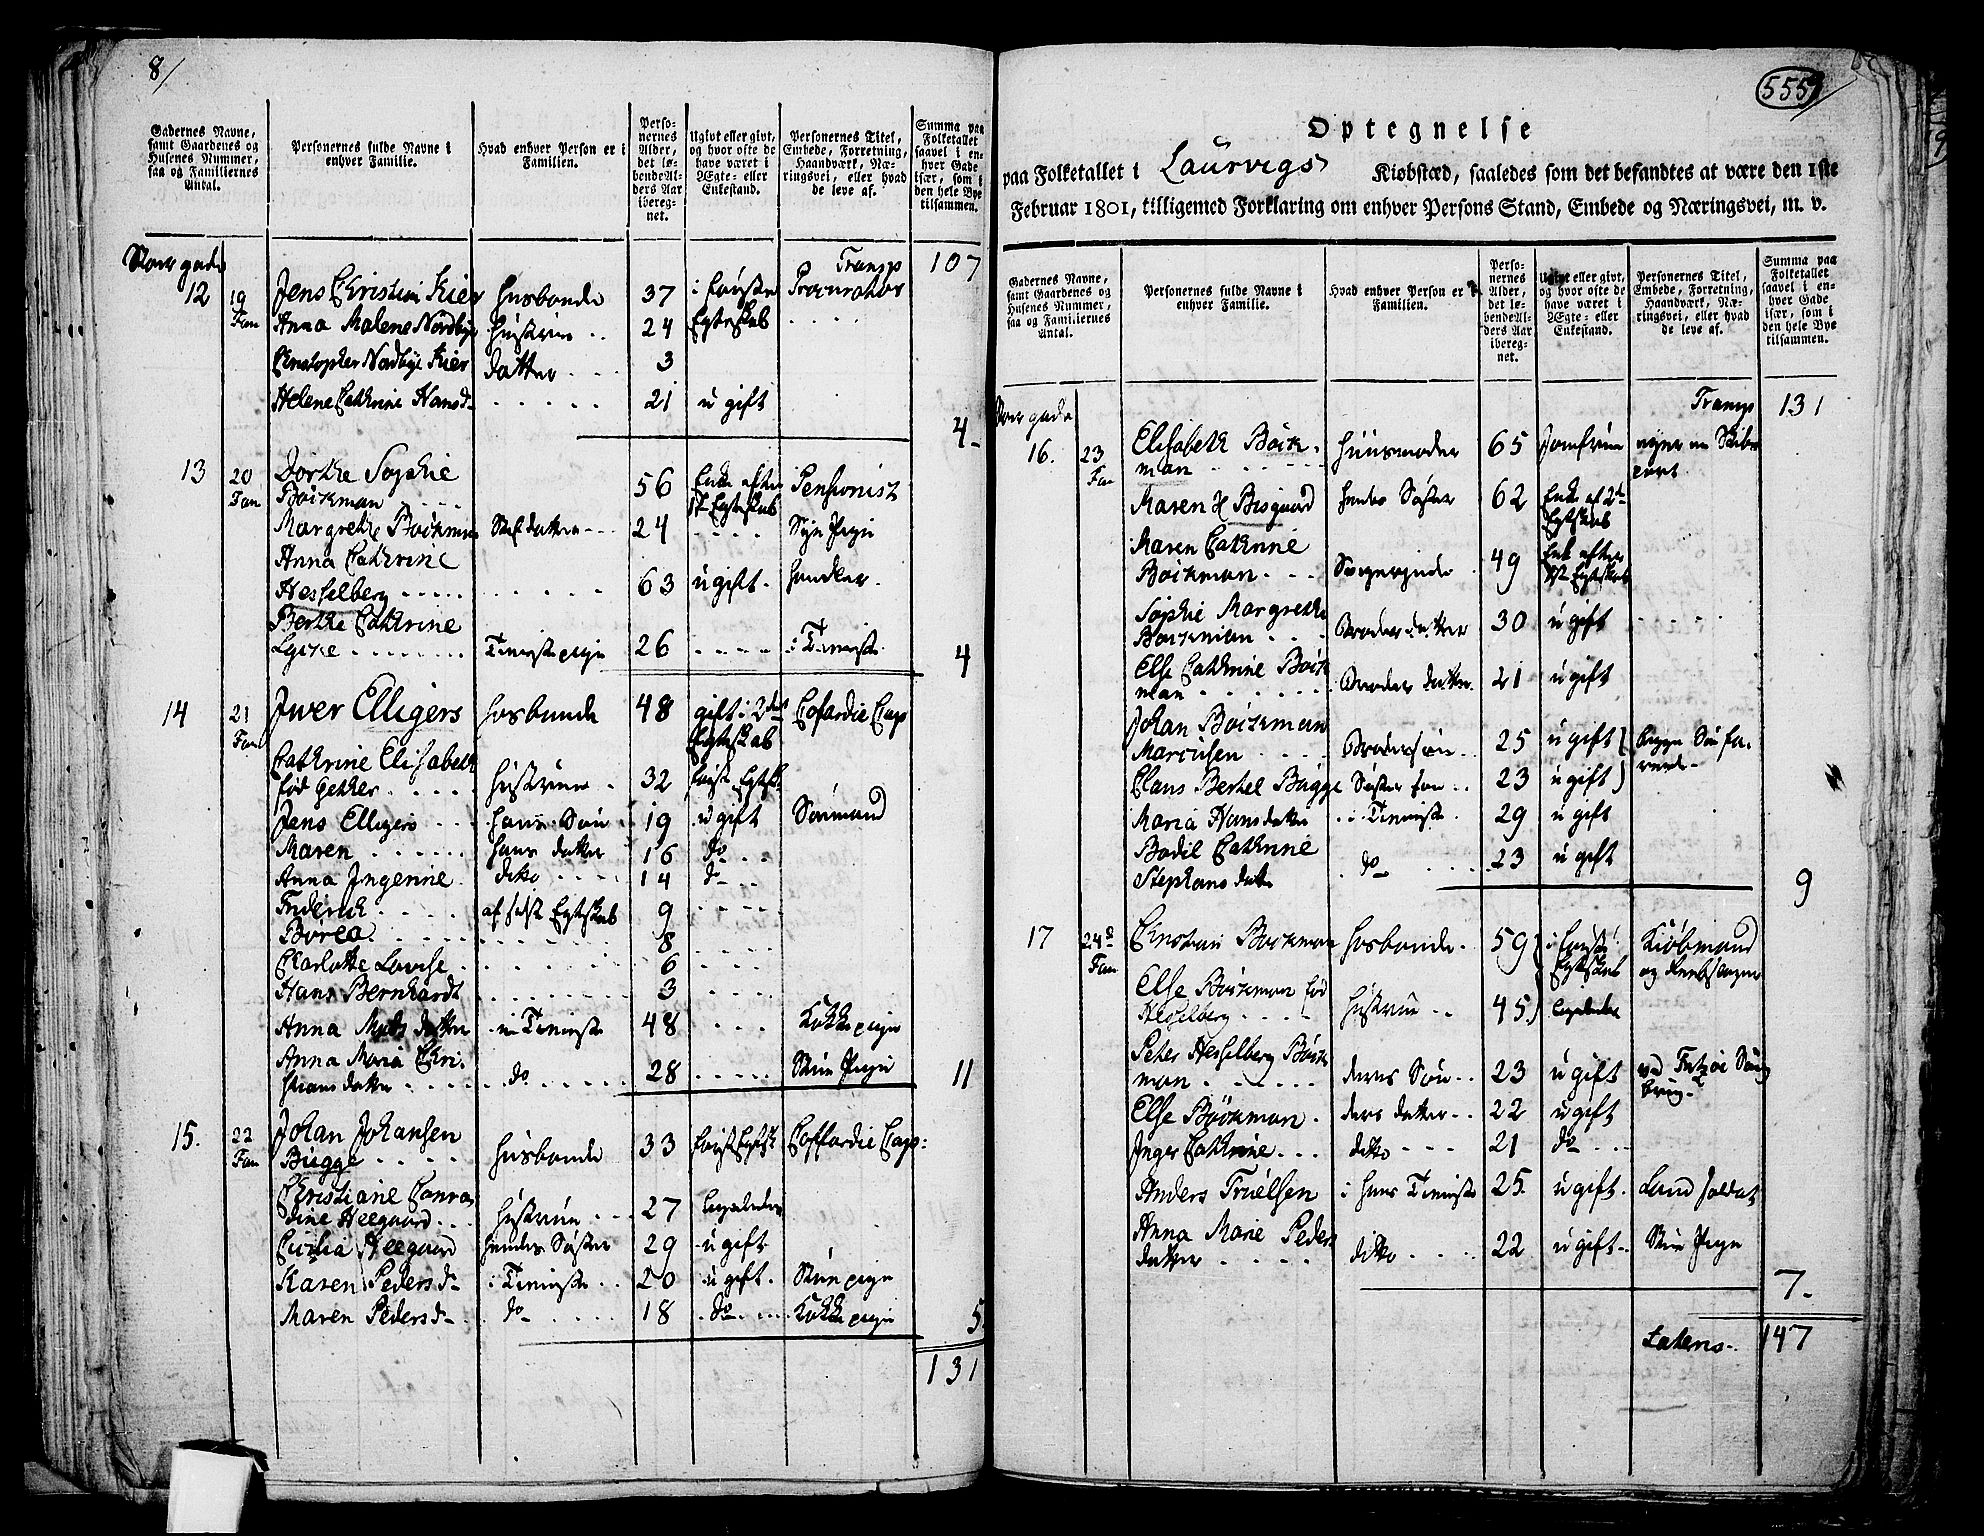 8/
Gadernes Navne, samt Gaardenes og Husenes Nummer, saa og Familiernes Antal.
Personernes fulde Navne i enhver Familie.
Hvad enhver Person er i Familien.
Personernes Alder, det løbende Alders Aar iberegnet.
Ugivt eller givt, og hvor ofte de have været i Ægte- eller Enkestand.
Personernes Titel, Embede, Forretning, Haandværk, Næringsvei, eller hvad de leve af.
Summa paa Folketallet saavel i enhver Gade især, som i den hele Bye tilsammen.
Storgade Transp 107
12 19 Fam Jens Christian Kier Husbonde 37 i første Procurator
Anna Malene Nordbye Hustrue 24 Egteskab
Christopher Nordbye Kier datter 3
Helene Cathrine Hansd 21 ugift
4
13 20 Fam Dorthe Sophie
Böckman 56 Enke efter 1st Egteskab Pensionist
Margrethe Böckman Stifdatter 24 Sye Pige
Anna Cathrine
Hesselberg 63 ugift handler
Berthe Cathrine
Lycke Tieniste pige 26 i Tieniste
4
14 21 Fam Iwer Elligers Hosbonde 48 gift i 2det Egteskab Cofardie Cap
Cathrine Elisabeth
fød Getker Hustrue 32 første Egtsk
Jens Elligers hans Søn 19 ugift Sømand
Maren hans datter 16 do
Anna Ingerine dito 14 do
Friderich af sidste Egteskab 9
Borea 8
Charlotte Lovise 6
Hans Bernhardt 3
Anna Mads datter i Tieniste 48 Kokkepige
Anna Maria Chri-
stians datter do 28 Stue Pige
11
15. 22 Fam Johan Johansen
Bugge Husbonde 33 første Egtsk Coffardie Cap:
Christiane Conra-
dine Heegaard Hustrue 27 ligeledes
Cicilia Heegaard hendes Søster 29 ugift
Karen Pedersd i Tieniste 20 ugift Stuepige
Maren Pedersd do 18 do Kokkepige
5
131
555
Optegnelse
paa Folketallet i Laurvigs Kiøbstæd, saaledes som det befandtes at være den 1ste
Februar 1801, tilligemed Forklaring om enhver Persons Stand, Embede og Næringsvei, m. v.
Gadernes Navne, samt Gaardenes og Husenes Nummer, saa og Familiernes Antal.
Personernes fulde Navne i enhver Familie.
Hvad enhver Person er i Familien.
Personernes Alder, det løbende Alders Aar iberegnet.
Ugivt eller givt, og hvor ofte de have været i Ægte- eller Enkestand.
Personernes Titel, Embede, Forretning, Haandværk, Næringsvei, eller hvad de leve af.
Summa paa Folketallet saavel i enhver Gade især, som i den hele Bye tilsammen.
Storgade Transp 131
16. 23 Fam Elisabeth Böck-
man Huusmoder 65 Jomfrue eyer en Skibs part
Maren H Bisgaard hendes Søster 62 Enke af 2de Egteskab
Maren Cathrine
Böckman Svigerinde 49 Enke efter 1st Egteskab
Sophie Margrethe
Böckman Broder datter 30 ugift
Else Cathrine Böck-
man Broder datter 21 ugift
Johan Böckman
Marcusen Brodersøn 25 ugift begge Søefa-
rende
Claus Bertel Bugge Søster søn 23 ugift
Maria Hansdatter i Tieniste 29 ugift
Bodil Cathrine
Stephans datter do 23 ugift
9
17 24de Fam Christian Böckman Hosbonde 59 i første Egteskab Kiöbmand
Else Böckman fød
Hesselberg Hustrue 45 ligeledes
Peter Hesselberg Böck-
man deres Søn 23 ugift ved Fritzøe Saug
brug
Else Böckman deres datter 22 ugift
Inger Cathrine ditto 21 do
Anders Truelsen i huus Tieniste 25. ugift Land soldat
Anna Marie Peders
datter ditto 22 ugift Stue Pige
7
Lateris 147